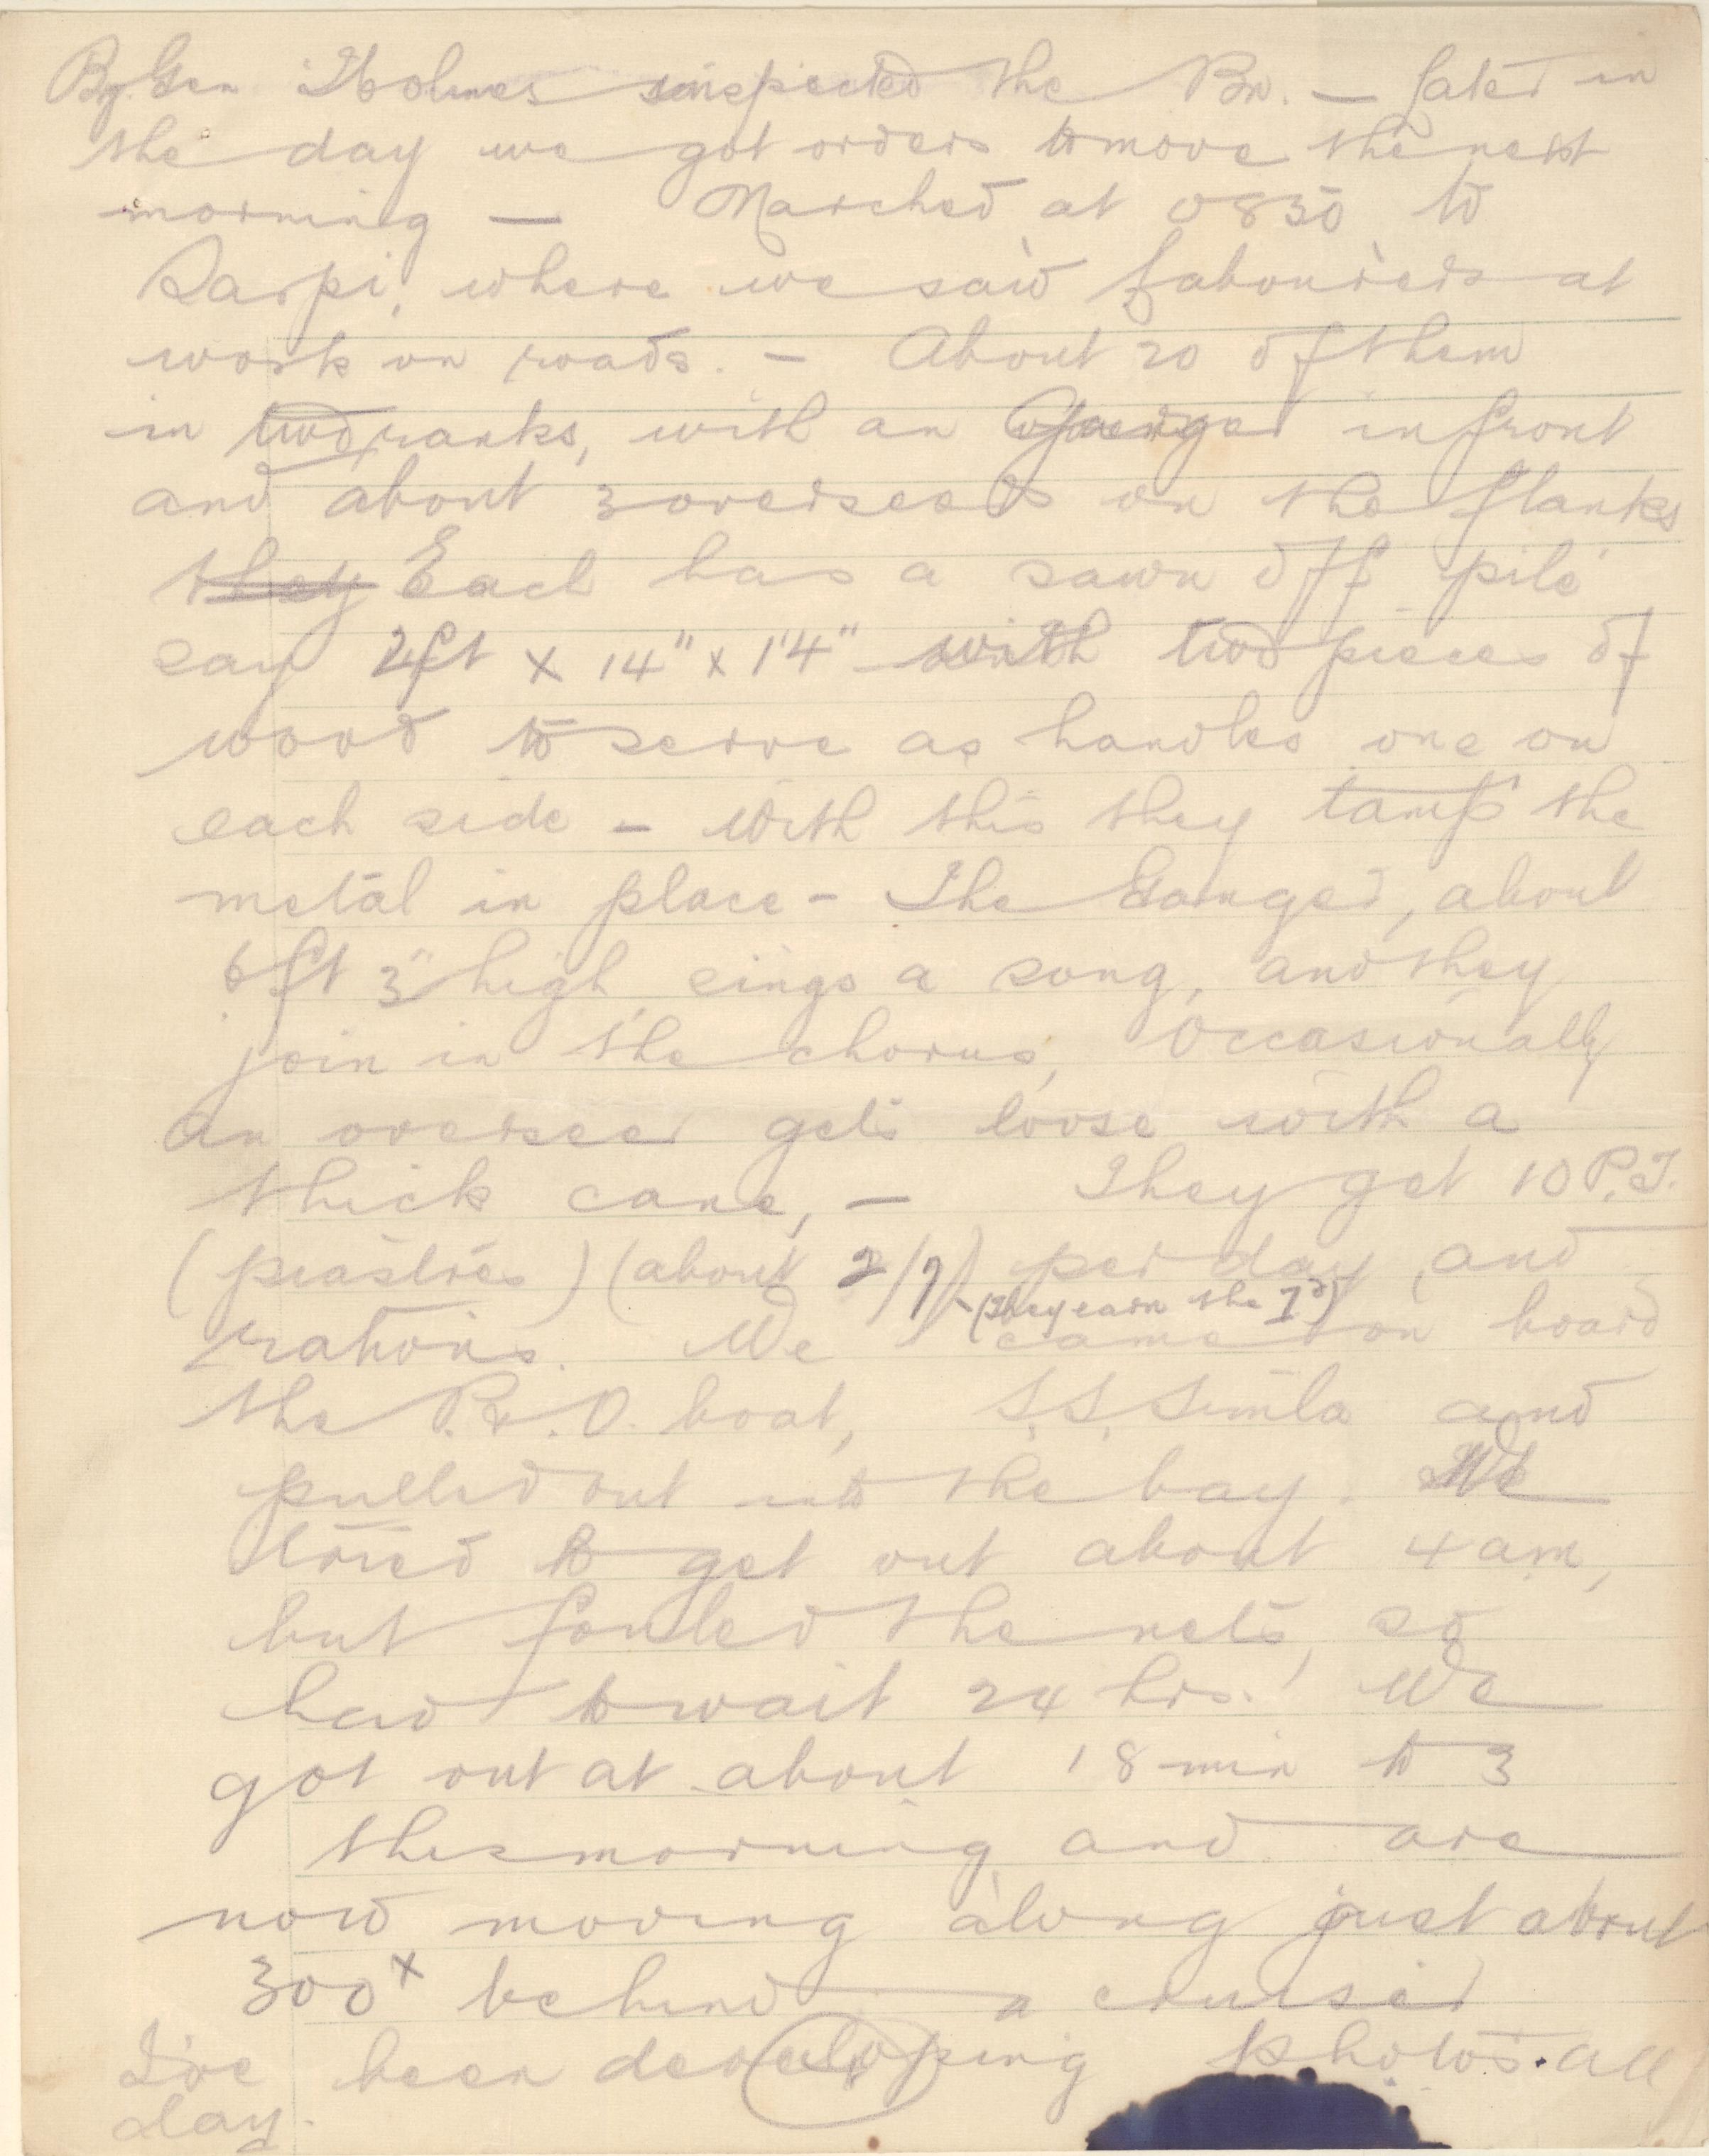 Bg. Gen Holmes inspected the Bn. — Later in
the day we got orders to move the next
morning — Marched at 0830 to
Sarpi, where we saw labourers at
work on roads. — About 20 of them
in two ranks, with an in front
and about 3 overseers on the flanks
they Each has a sawn off pile
say 2ft x 14" x 14" with two pieces of
wood to serve as handles one on
each side - with this they tamp the
metal in place - The Ganger, about
6ft 3" high, sings a song, and they
join in the chorus, Occasionally
an overseer gets loose with a
thick cane, — They get 10 P.T.
(piastres) (about 2/1) per day, and
(They earn the 1d)
rations. We came on board
the P.&.O. boat, S.S. Simla and
pulled out into the bay. We
tried to get out about 4 am,
but fouled the nets, so
had to wait 24 hrs. We
got out at about 18 min to 3
this morning and are
now moving along just about
300x behind a cruiser
I've been developing photos all
day.